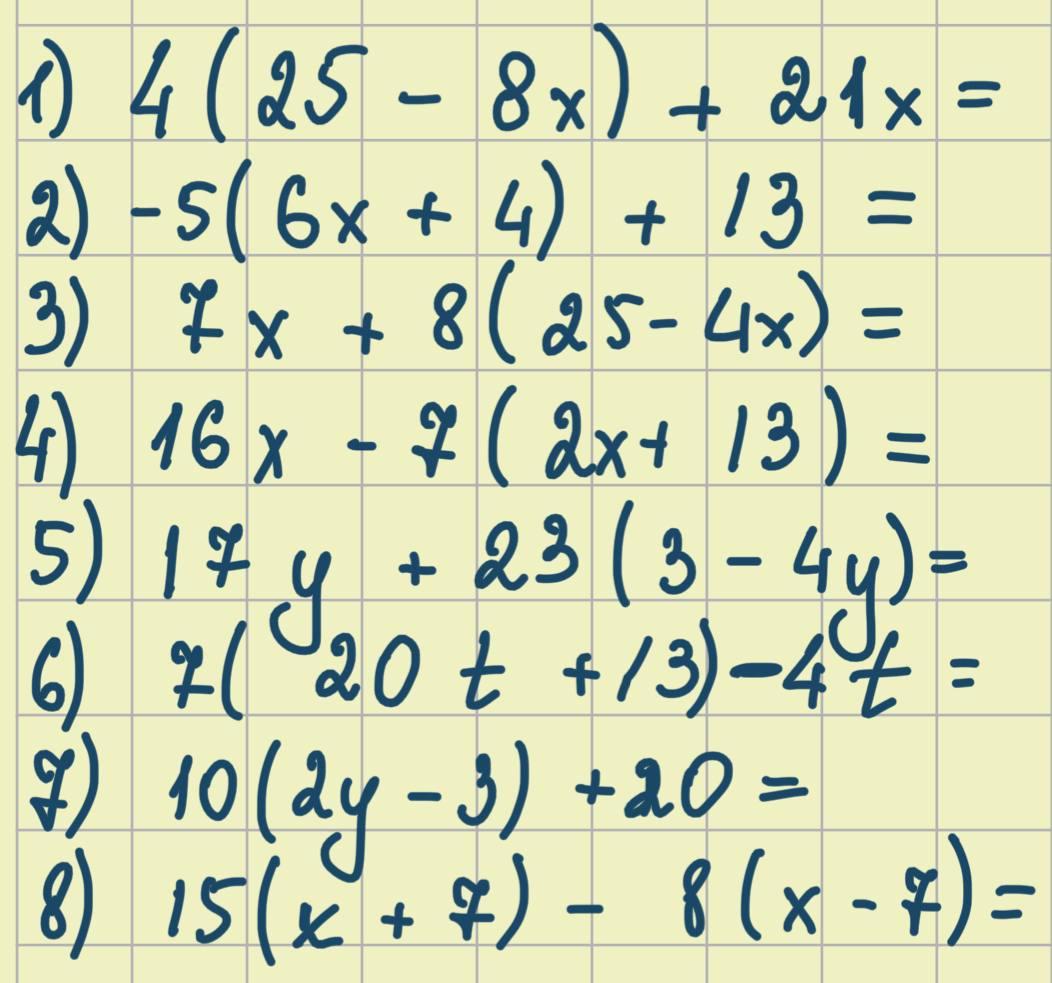 1) 4(25 - 8x) + 21x =
2) -5(6x + 4) + 13 =
3) 7x + 8(25 - 4x) =
4) 16x - 7(2x + 13) =
5) 17y + 23(3 - 4y) =
6) 7(20t + 13) - 4t =
7) 10(2y - 3) + 20 =
8) 15(x + 7) - 8(x - 7) =